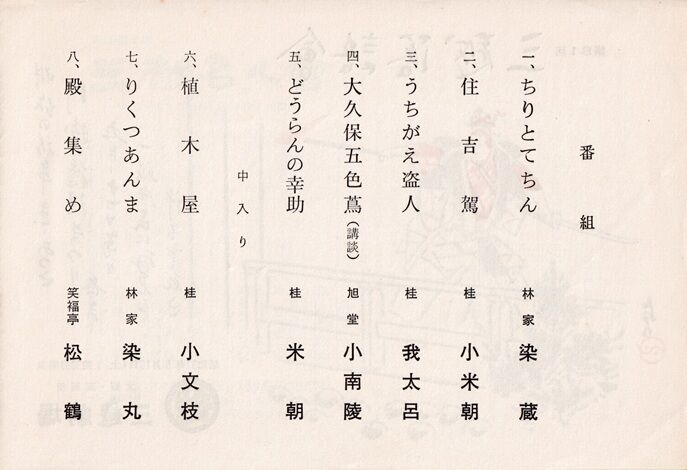 番組
一、ちりとてちん 林家 染蔵
二、住吉駕 桂 小米朝
三、うちがえ盗人 桂 我太呂
四、大久保五色蔦（講談） 旭堂 小南陵
五、どうらんの幸助 桂 米朝
中入り
六、植木屋 桂 小文枝
七、りくつあんま 林家 染丸
八、殿集め 笑福亭 松鶴